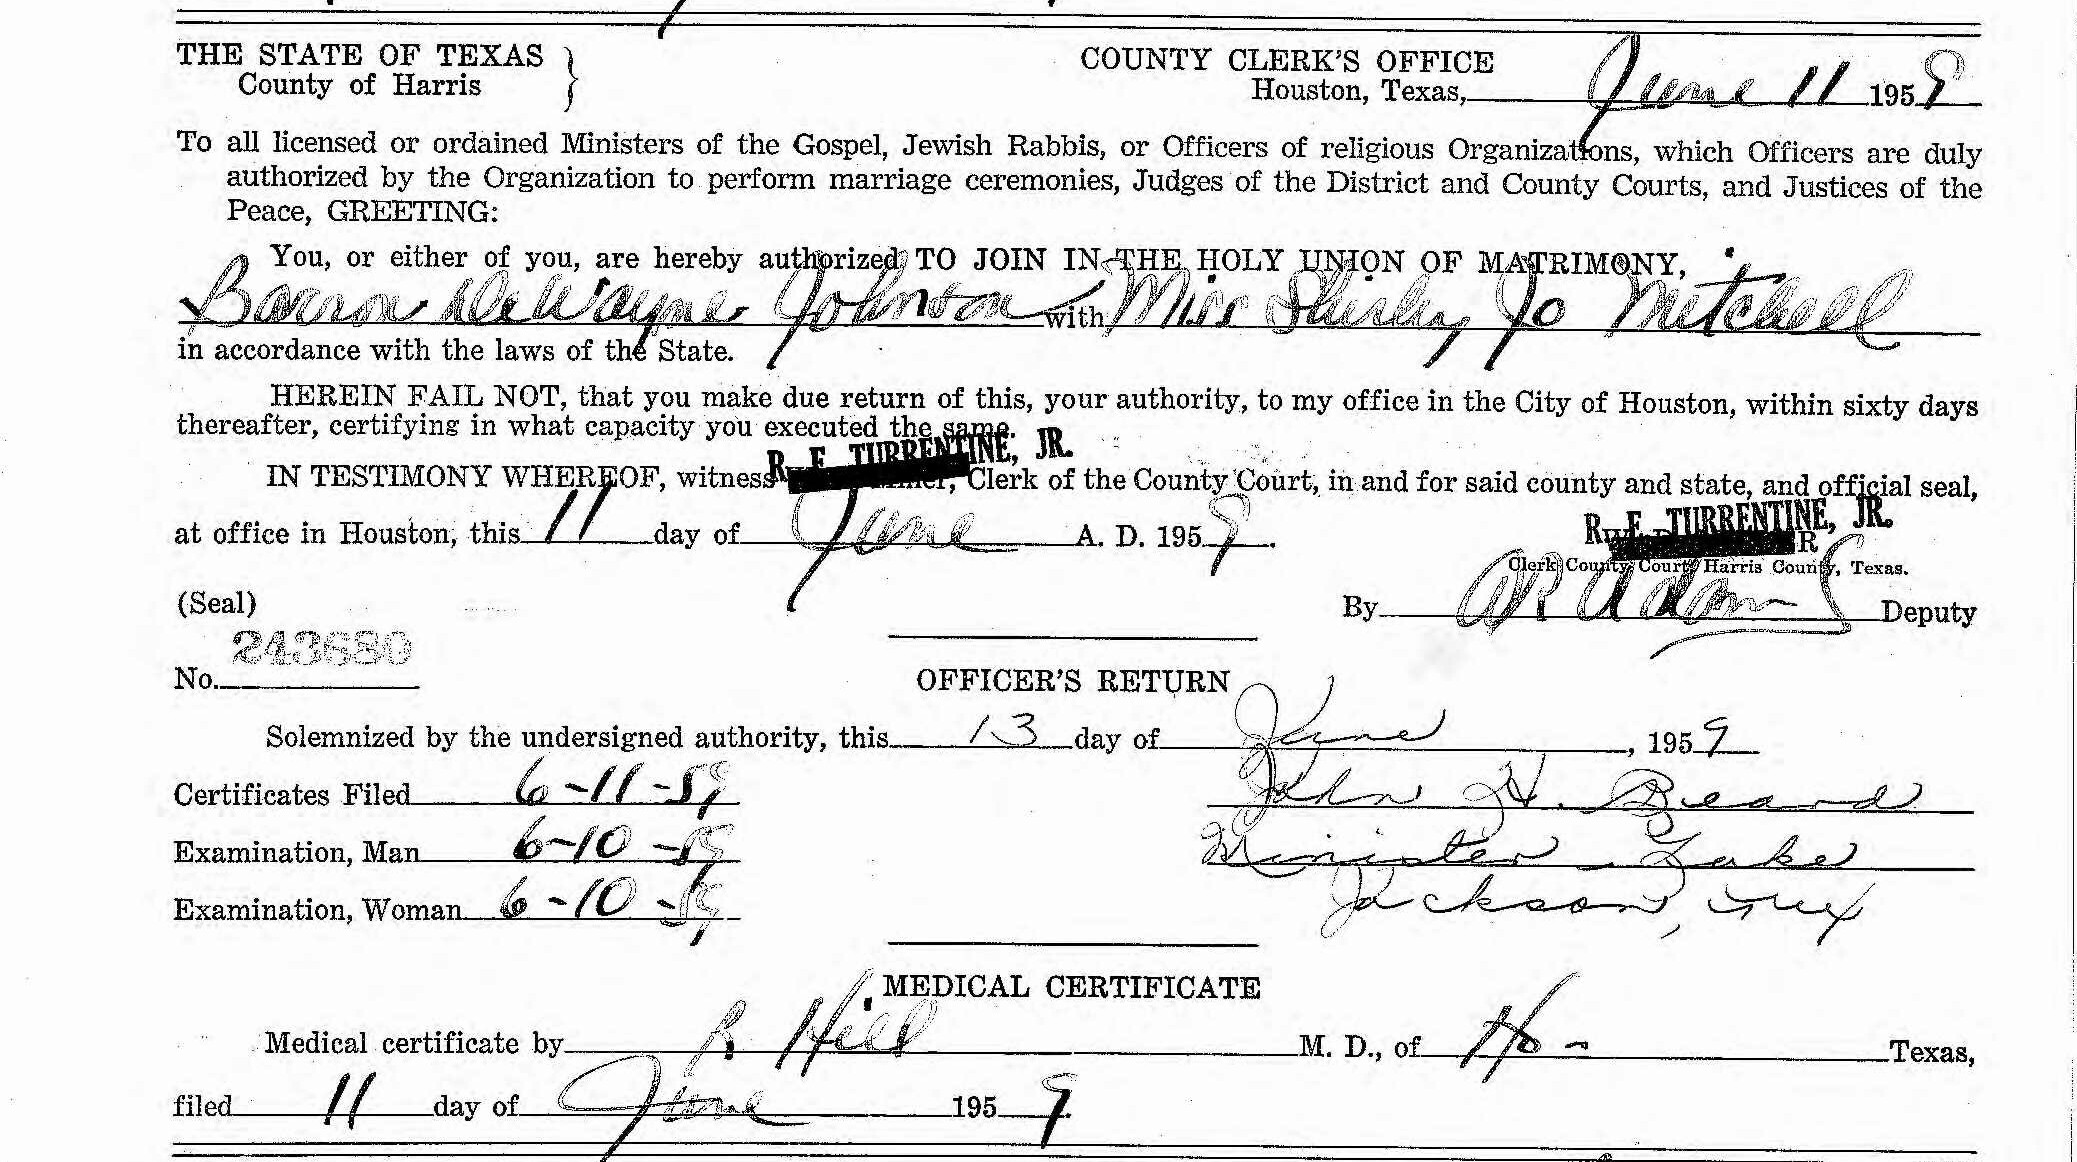 THE STATE OF TEXAS }
County of Harris
COUNTY CLERK'S OFFICE
Houston, Texas, June 11 1959
To all licensed or ordained Ministers of the Gospel, Jewish Rabbis, or Officers of religious Organizations, which Officers are duly
authorized by the Organization to perform marriage ceremonies, Judges of the District and County Courts, and Justices of the
Peace, GREETING:
You, or either of you, are hereby authorized TO JOIN IN THE HOLY UNION OF MATRIMONY,
Barron DeWayne Johnson with Miss Shirley Jo Mitchell
in accordance with the laws of the State.
HEREIN FAIL NOT, that you make due return of this, your authority, to my office in the City of Houston, within sixty days
thereafter, certifying in what capacity you executed the same.
IN TESTIMONY WHEREOF, witness R. E. TURRENTINE, JR. Clerk of the County Court, in and for said county and state, and official seal,
at office in Houston, this 11 day of June A. D. 1959.
R. E. TURRENTINE, JR.
Clerk County Court Harris County, Texas.
(Seal)
By A R Adams Deputy
243680
No.
OFFICER'S RETURN
Solemnized by the undersigned authority, this 13 day of June, 1959
Certificates Filed 6-11-59
John H. Beard
Examination, Man 6-10-59
Minister Lake
Examination, Woman 6-10-59
Jackson, Tex
MEDICAL CERTIFICATE
Medical certificate by R Hill M. D., of Ho- Texas,
filed 11 day of June 1959.